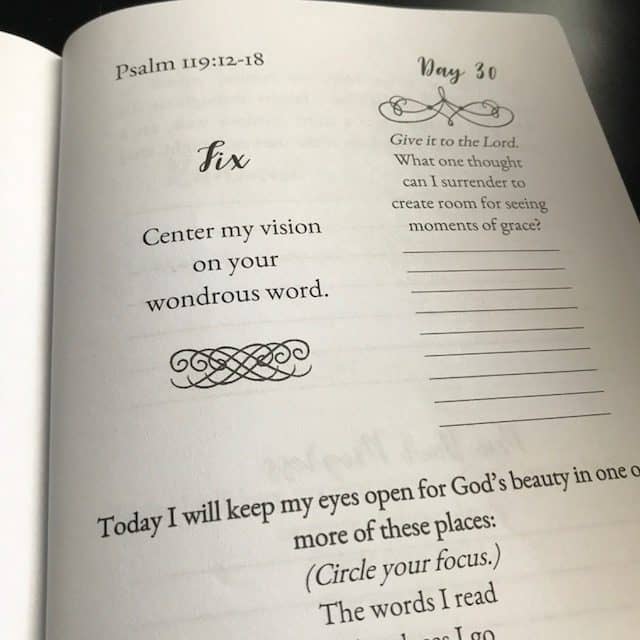 Psalm 119:12-18
Fix
Center my vision
on your
wondrous word.
Day 30
Give it to the Lord.
What one thought
can I surrender to
create room for seeing
moments of grace?
Today I will keep my eyes open for God's beauty in one o
more of these places:
(Circle your focus.)
The words I read
I go